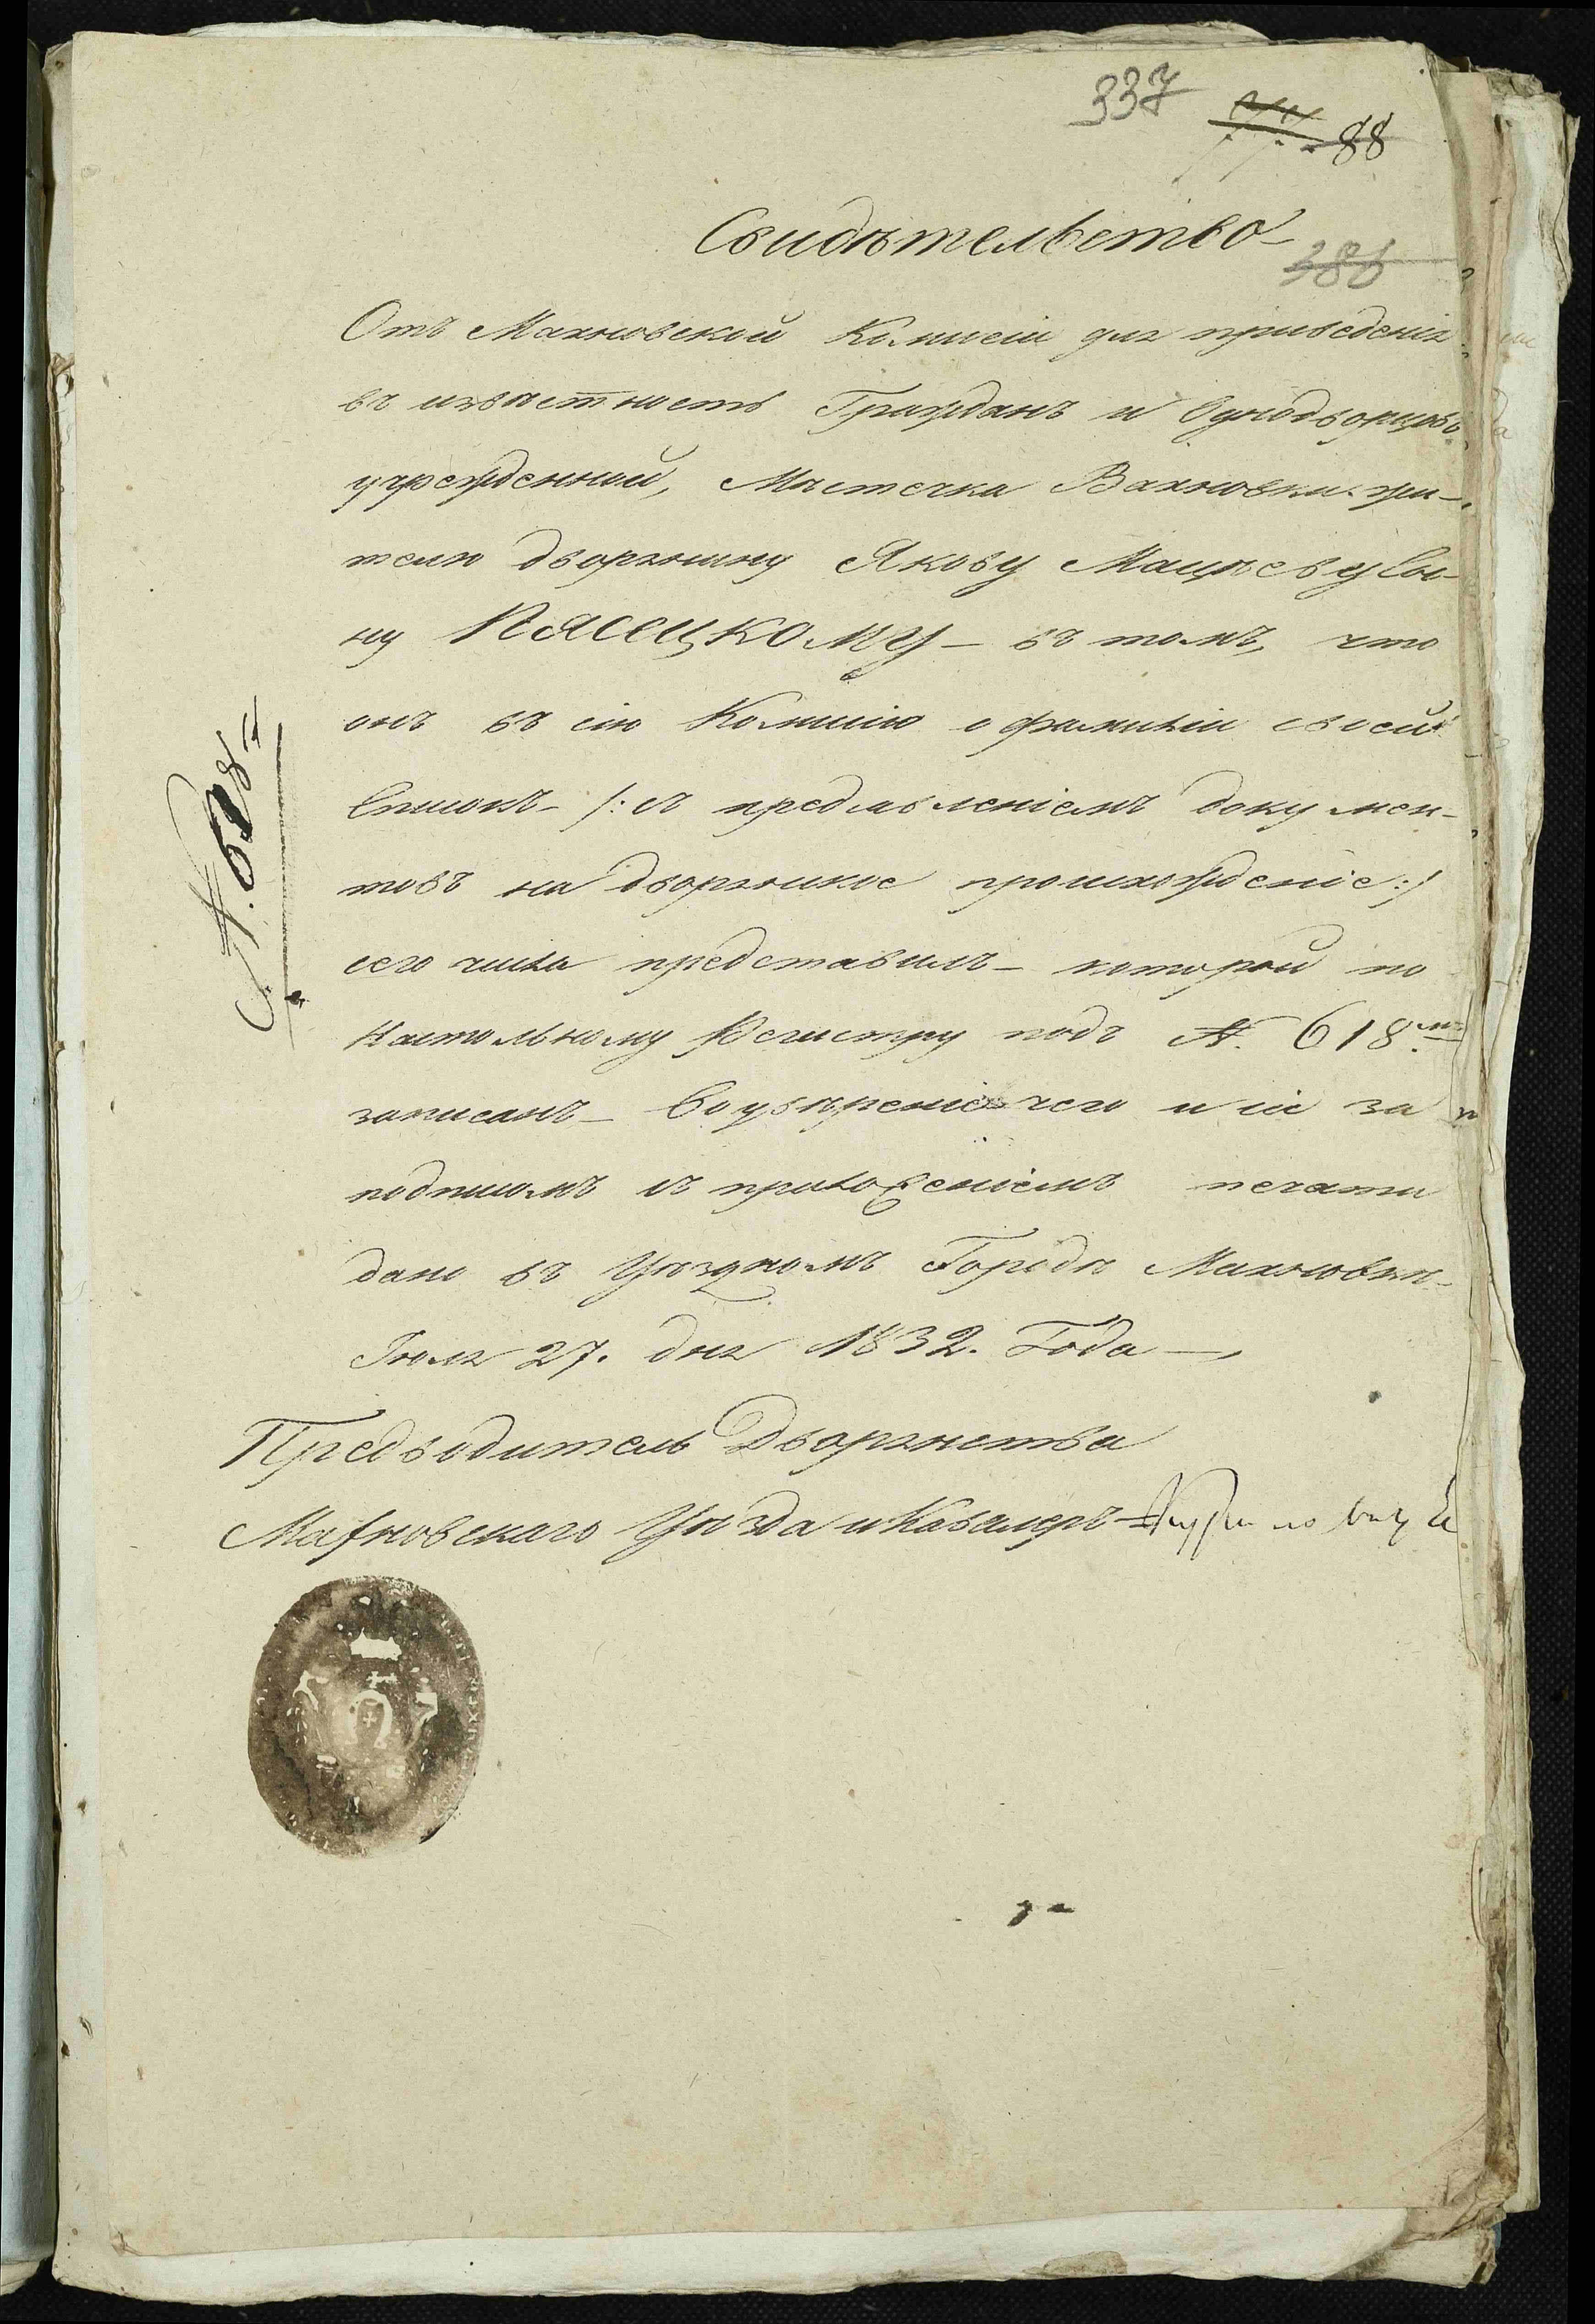 337
88
Свидѣтельство
386
Отъ Махновской Комисіи для приведенія
въ извѣстность Гражданъ и Однодворцовъ
учрежденной, Мѣстечка Вахновки жи-
телю дворянину Якову Мацѣеву Сы-
ну Пясецкому – въ томъ, что
онъ въ сію Комисію о фамиліи своей
Списокъ – /: съ предъявленіемъ докумен-
товъ на дворянское происхожденіе :/
сего числа представилъ – которой по
Настольному Регистру подъ N. 618.мъ
записанъ – Во увѣреніе чего и сіе за
подписомъ и съ приложеніемъ печати
дано въ Уѣздномъ Городѣ Махновкѣ –
Іюля 27. дня 1832. Года –
Предводитель Дворянства
Махновскаго Уѣзда и Кавалеръ
N. 618